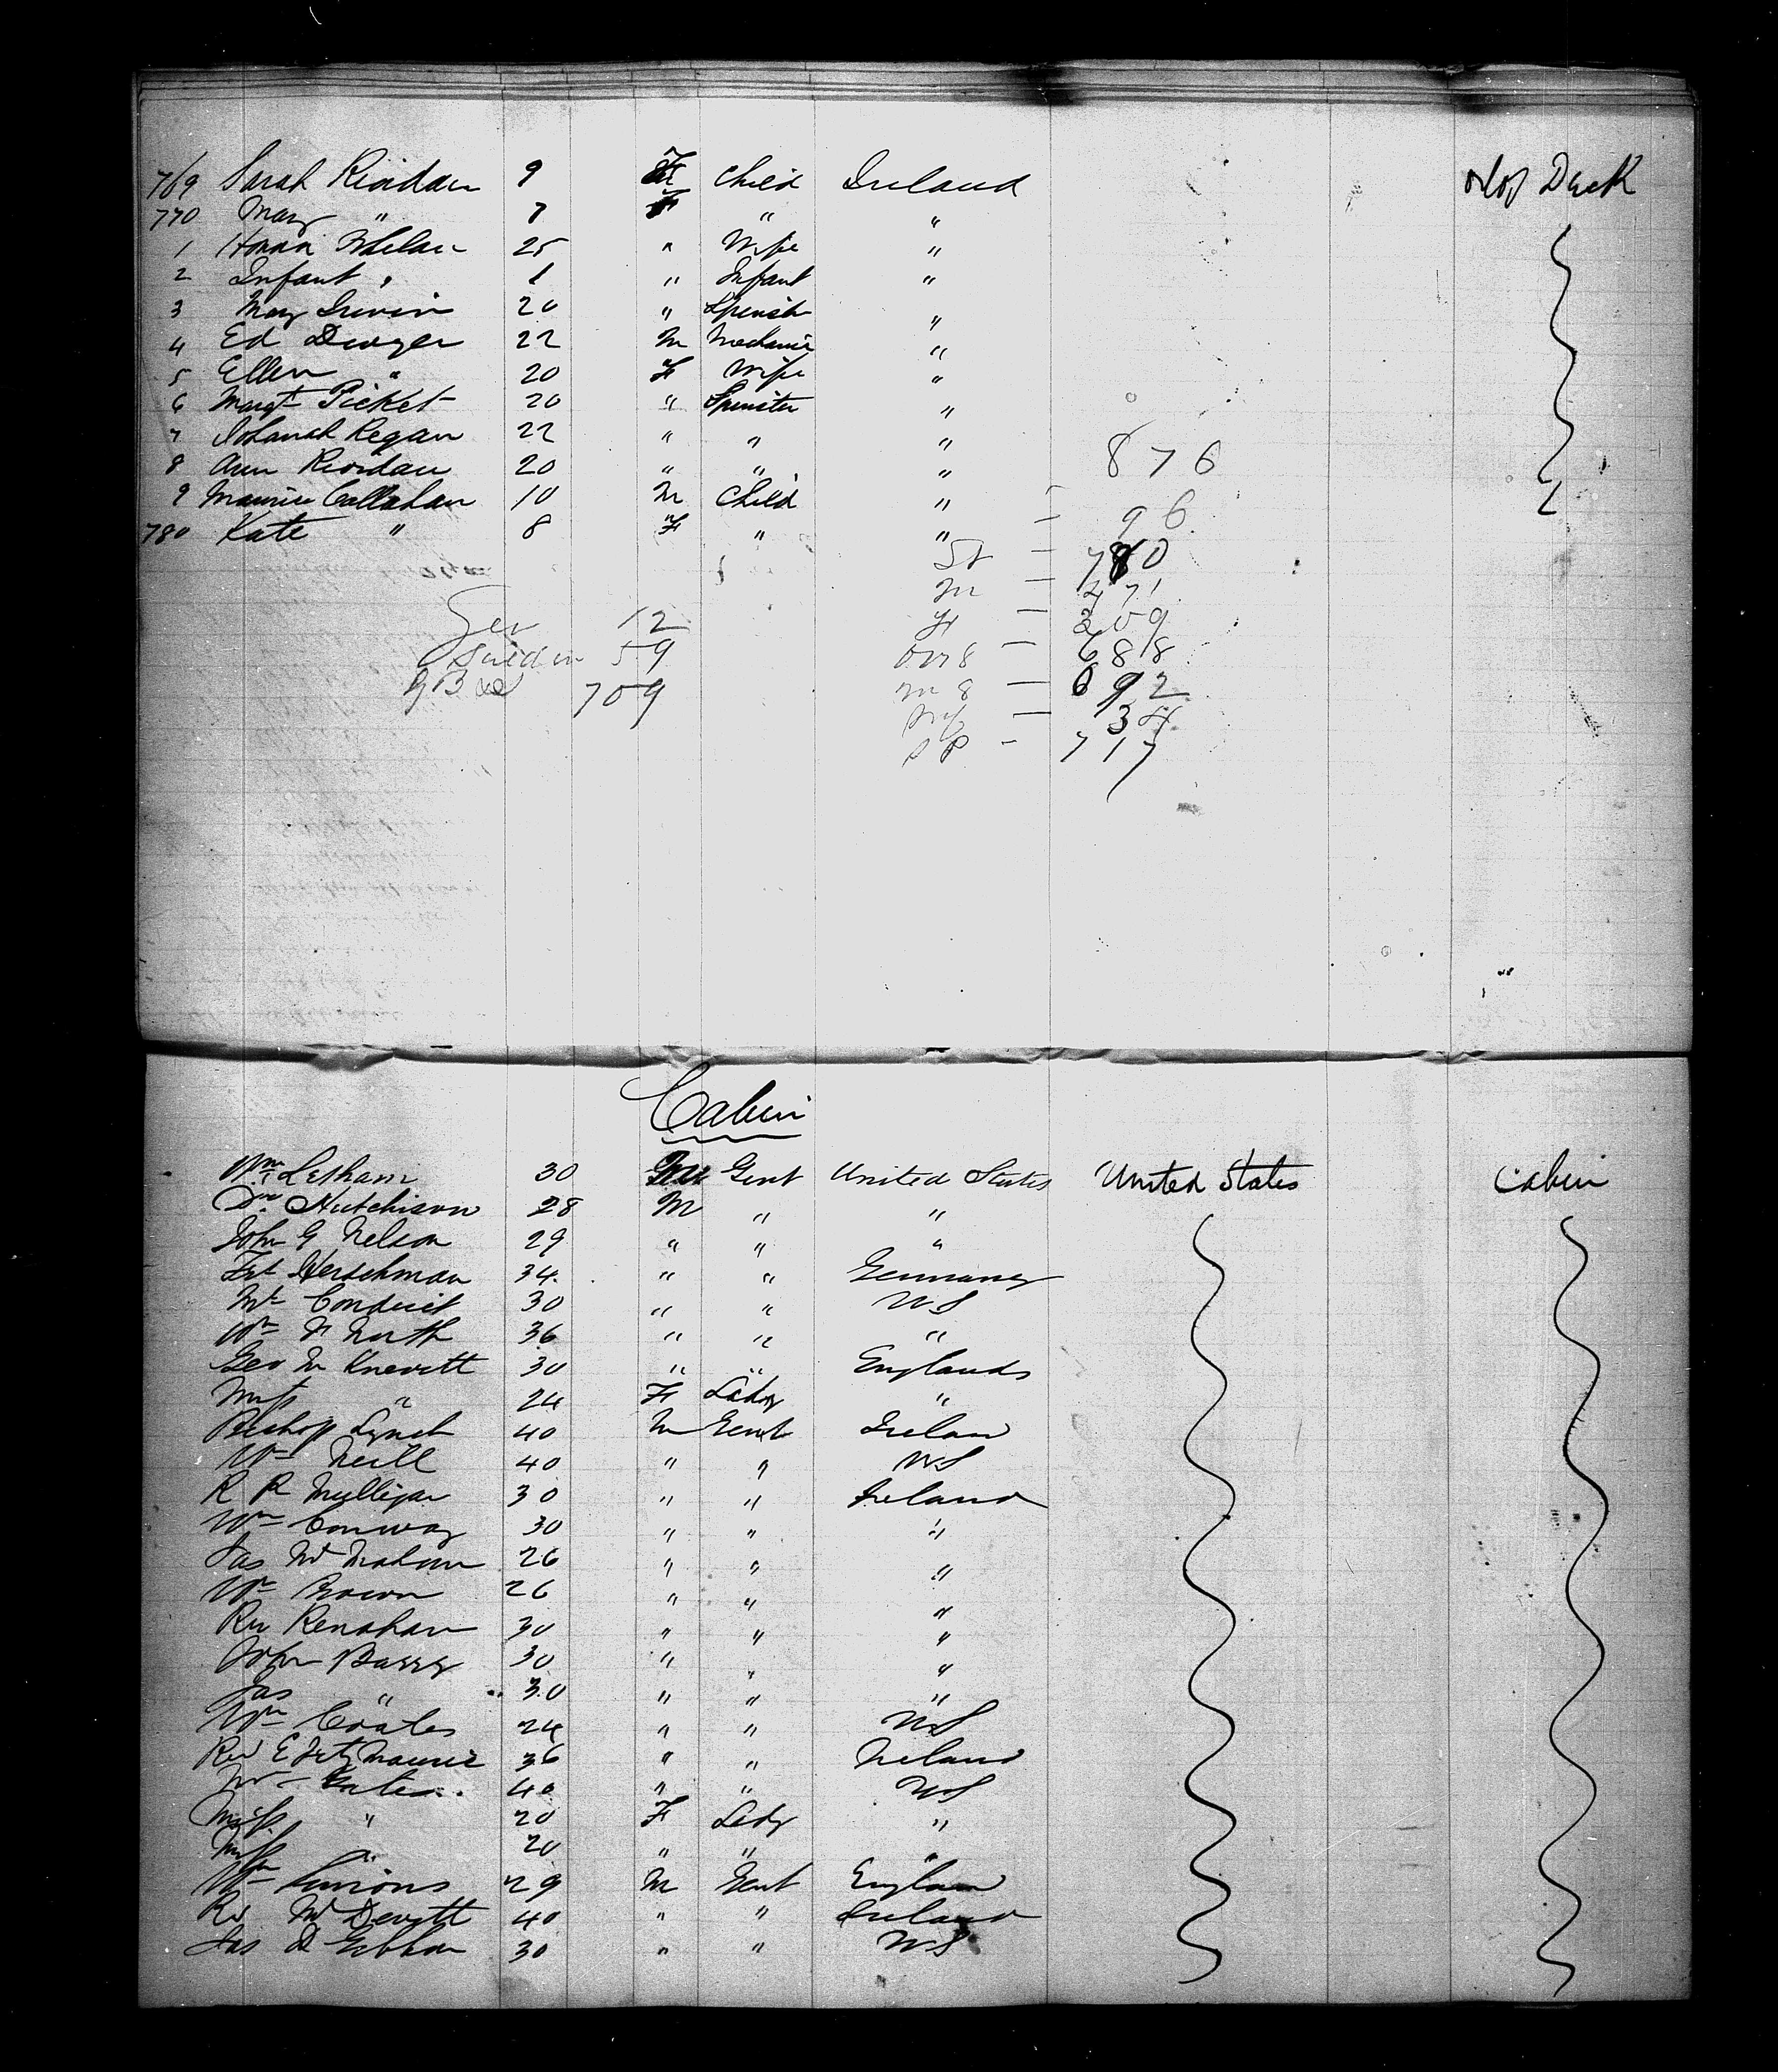 769 Sarah Riordan 9 F Child Ireland Orlop Deck
770 Mary " 7 F " "
1 Honora Whelan 25 " Wife "
2 Infant " 1 " Infant "
3 Mary Irwin 20 " Spinster "
4 Ed Dwyer 22 M Mechanic "
5 Ellen " 20 F Wife "
6 Margt Picket 20 " Spinster "
7 Johanah Regan 22 " " "
8 Ann Riordan 20 " " "
876
9 Maurice Callahan 10 M Child "
96
780 Kate " 8 F " "
St — 780
M — 471
Ger 12 F — 309
Sweden 59 ovr 8 — 688
G B & I 709 M 8 — 92
Inf — 34
717
Cabin
Wm Letham 30 M Gent United States United States Cabin
Dr Hutchison 28 M " "
John G Nelson 29 " " "
Herschman 34 " " Germany
Mr Conduit 30 " " U S
Wm H North 36 " " "
Geo M Knevitt 30 " " England
Mrs " 24 F Lady "
Bishop Lynch 40 M Gent Irelan
Wm Neill 40 " " U S
R R Mulligan 30 " " Ireland
Wm Conway 30 " " "
Jas McMahon 26 " " "
Wm Brown 26 " " "
Rev Renahan 30 " " "
John Barry 30 " " "
Jas " 30 " " "
Wm Coates 24 " " U S
Rev E Fitzmaurice 36 " " Ireland
Mr Gates 40 " " U S
Miss " 20 F Lady "
Miss " 20 " " "
Wm 29 M Gent Englan
Rev McDevitt 40 " " Ireland
Jas D 30 " " U S